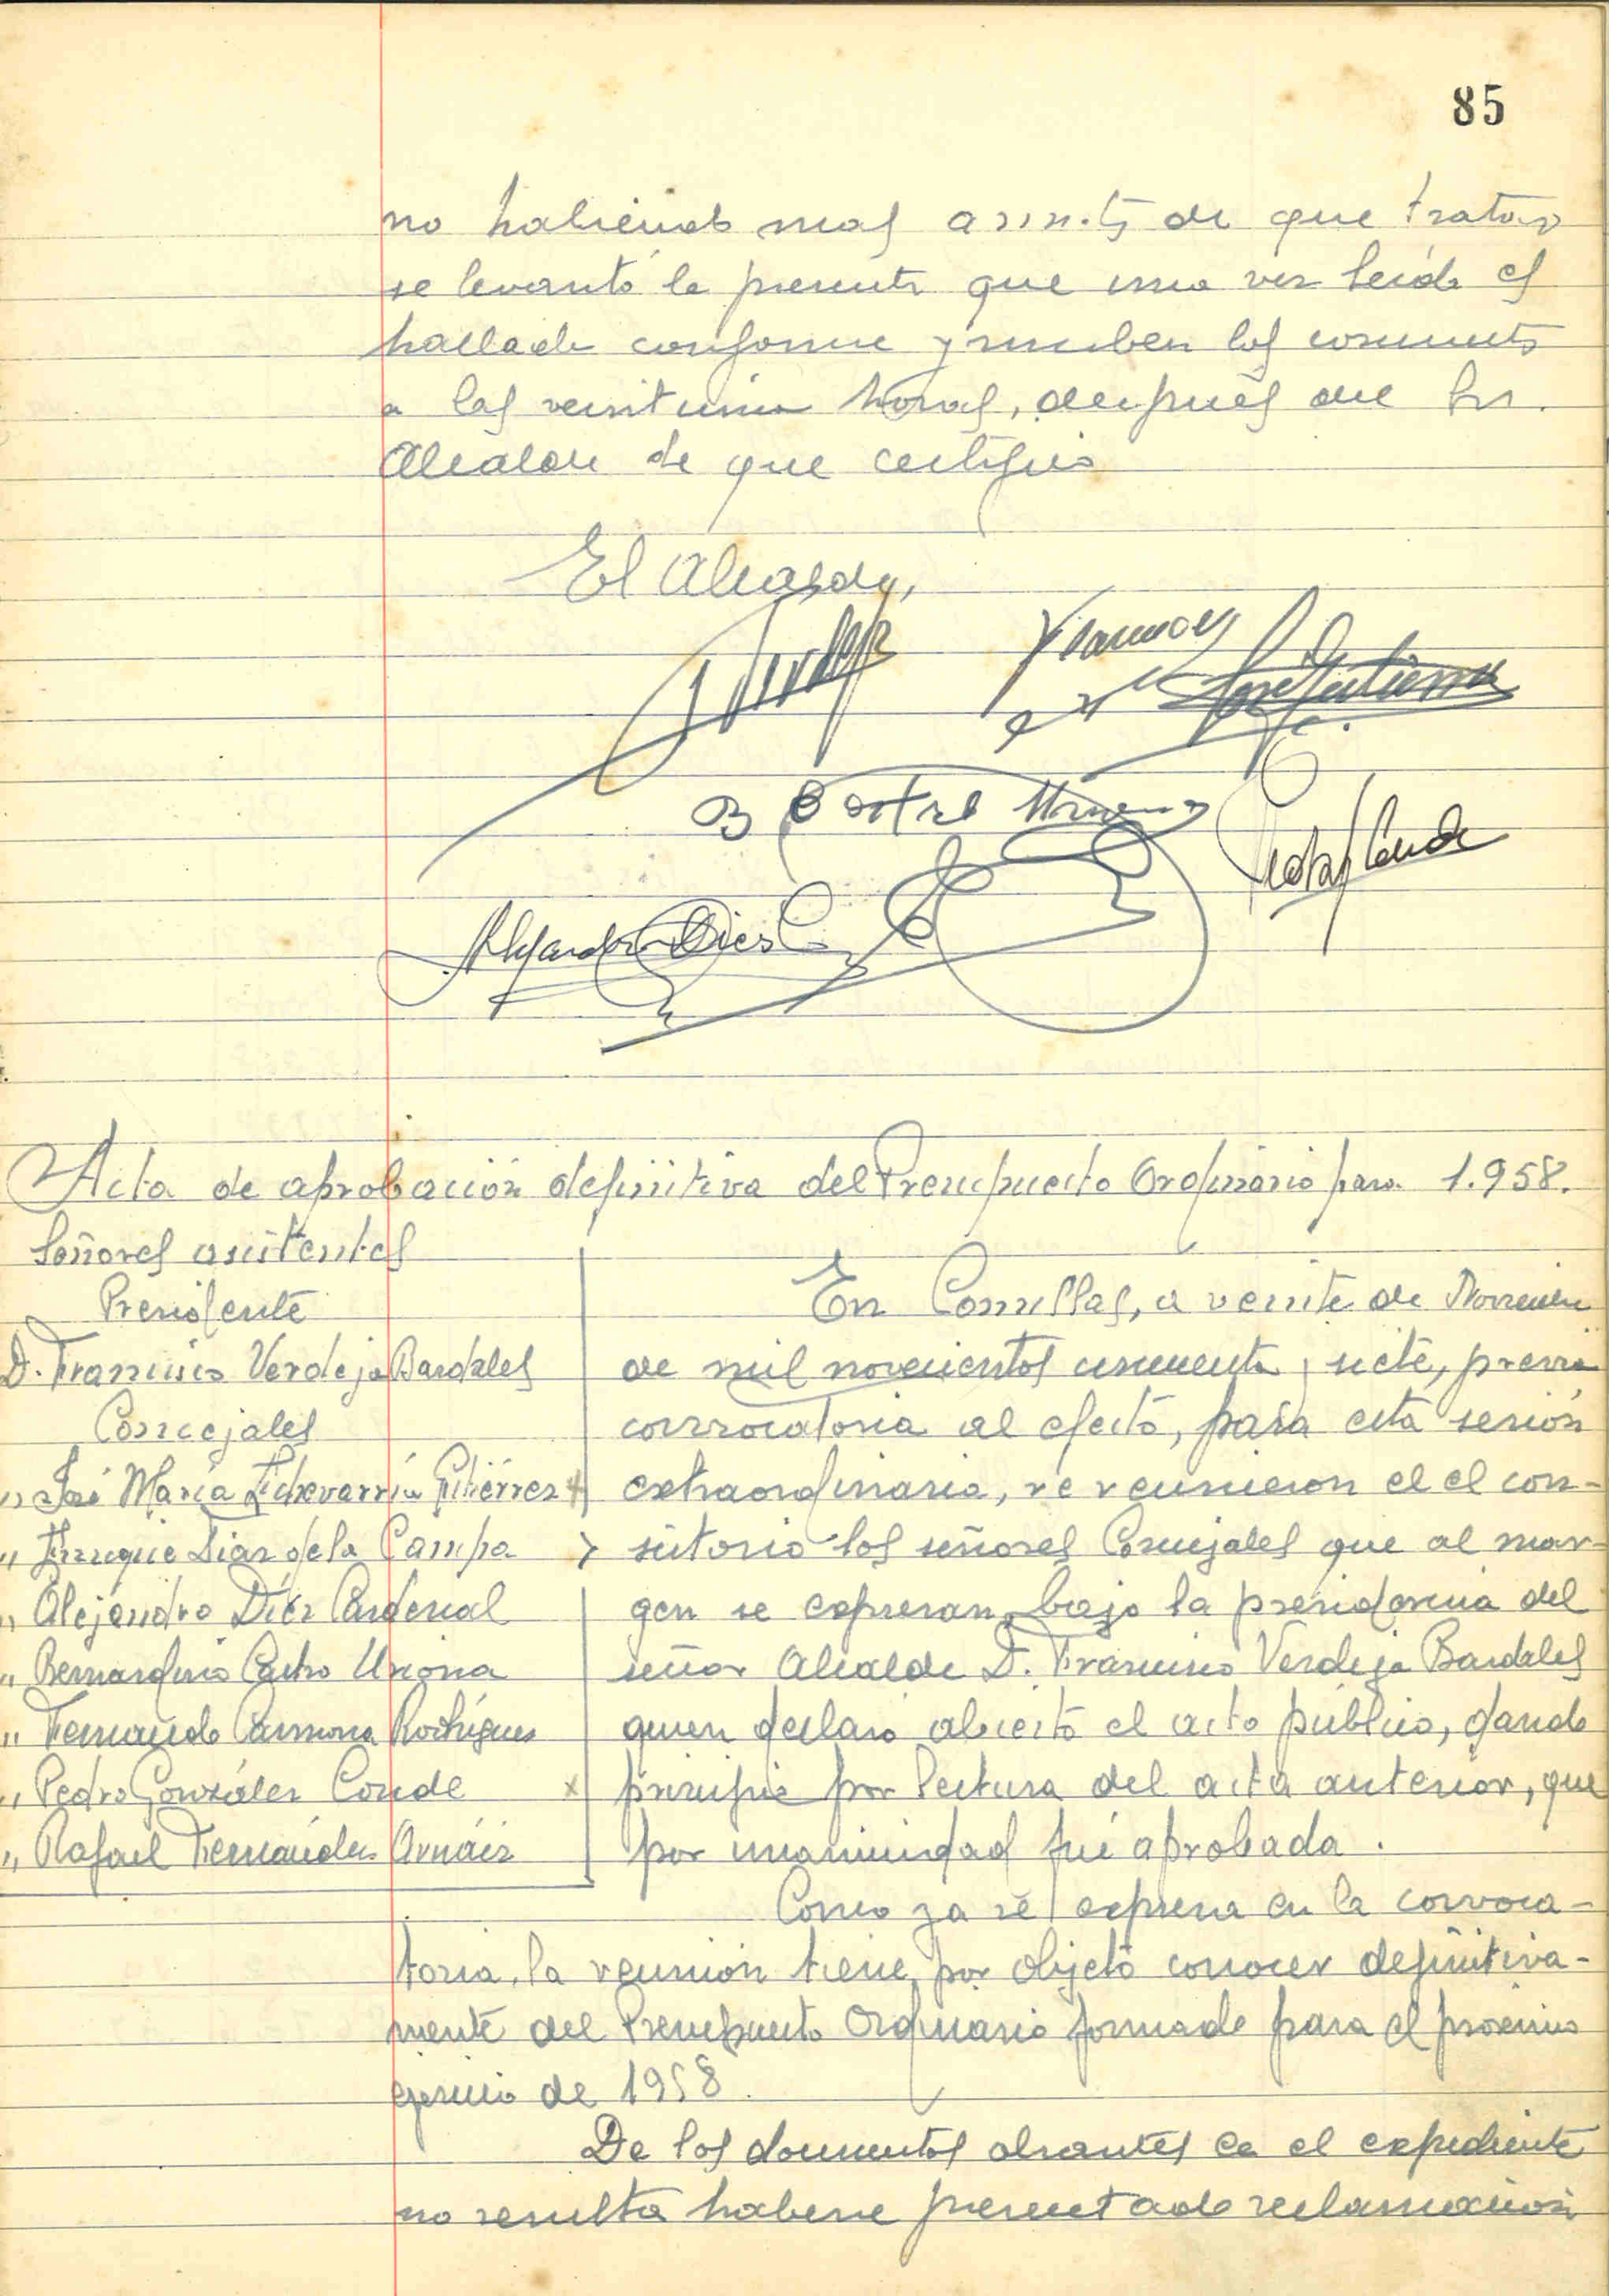 85
no habiendo mas asuntos de que tratar
se levantó la presente que una vez leida es
hallada conforme y suscriben los
a las veintiuna horas, después del Sr.
Alcalde de que certifico
El Alcalde,
B Castro
Alejandro Díez
Acta de aprobación definitiva del Presupuesto Ordinario para 1.958.
Señores asistentes
Presidente
D. Francisco Verdeja Bardales
Concejales
" José María Echevarría Gutiérrez
" Enrique Díaz de la Campa
" Alejandro Díez Cardenal
" Bernardino Castro
" Fernando Carmona Rodríguez
" Pedro González Conde x
" Rafael Fernández Arnáiz
En Comillas, a veinte de Noviembre
de mil novecientos cincuenta y siete, previa
convocatoria al efecto, para esta sesión
extraordinaria, se reunieron el el con-
sistorio los señores Concejales que al mar-
gen se expresan, bajo la presidencia del
señor Alcalde D. Francisco Verdeja Bardales
quien declaro abierto el acto público, dando
principio por lectura del acta anterior, que
por unanimidad fué aprobada.
Como ya se expresa en la convoca-
toria, la reunión tiene por objeto conocer definitiva-
mente del Presupuesto Ordinario formado para el próximo
ejercicio de 1958.
De los documentos obrantes en el expediente
no resulta haberse presentado reclamación